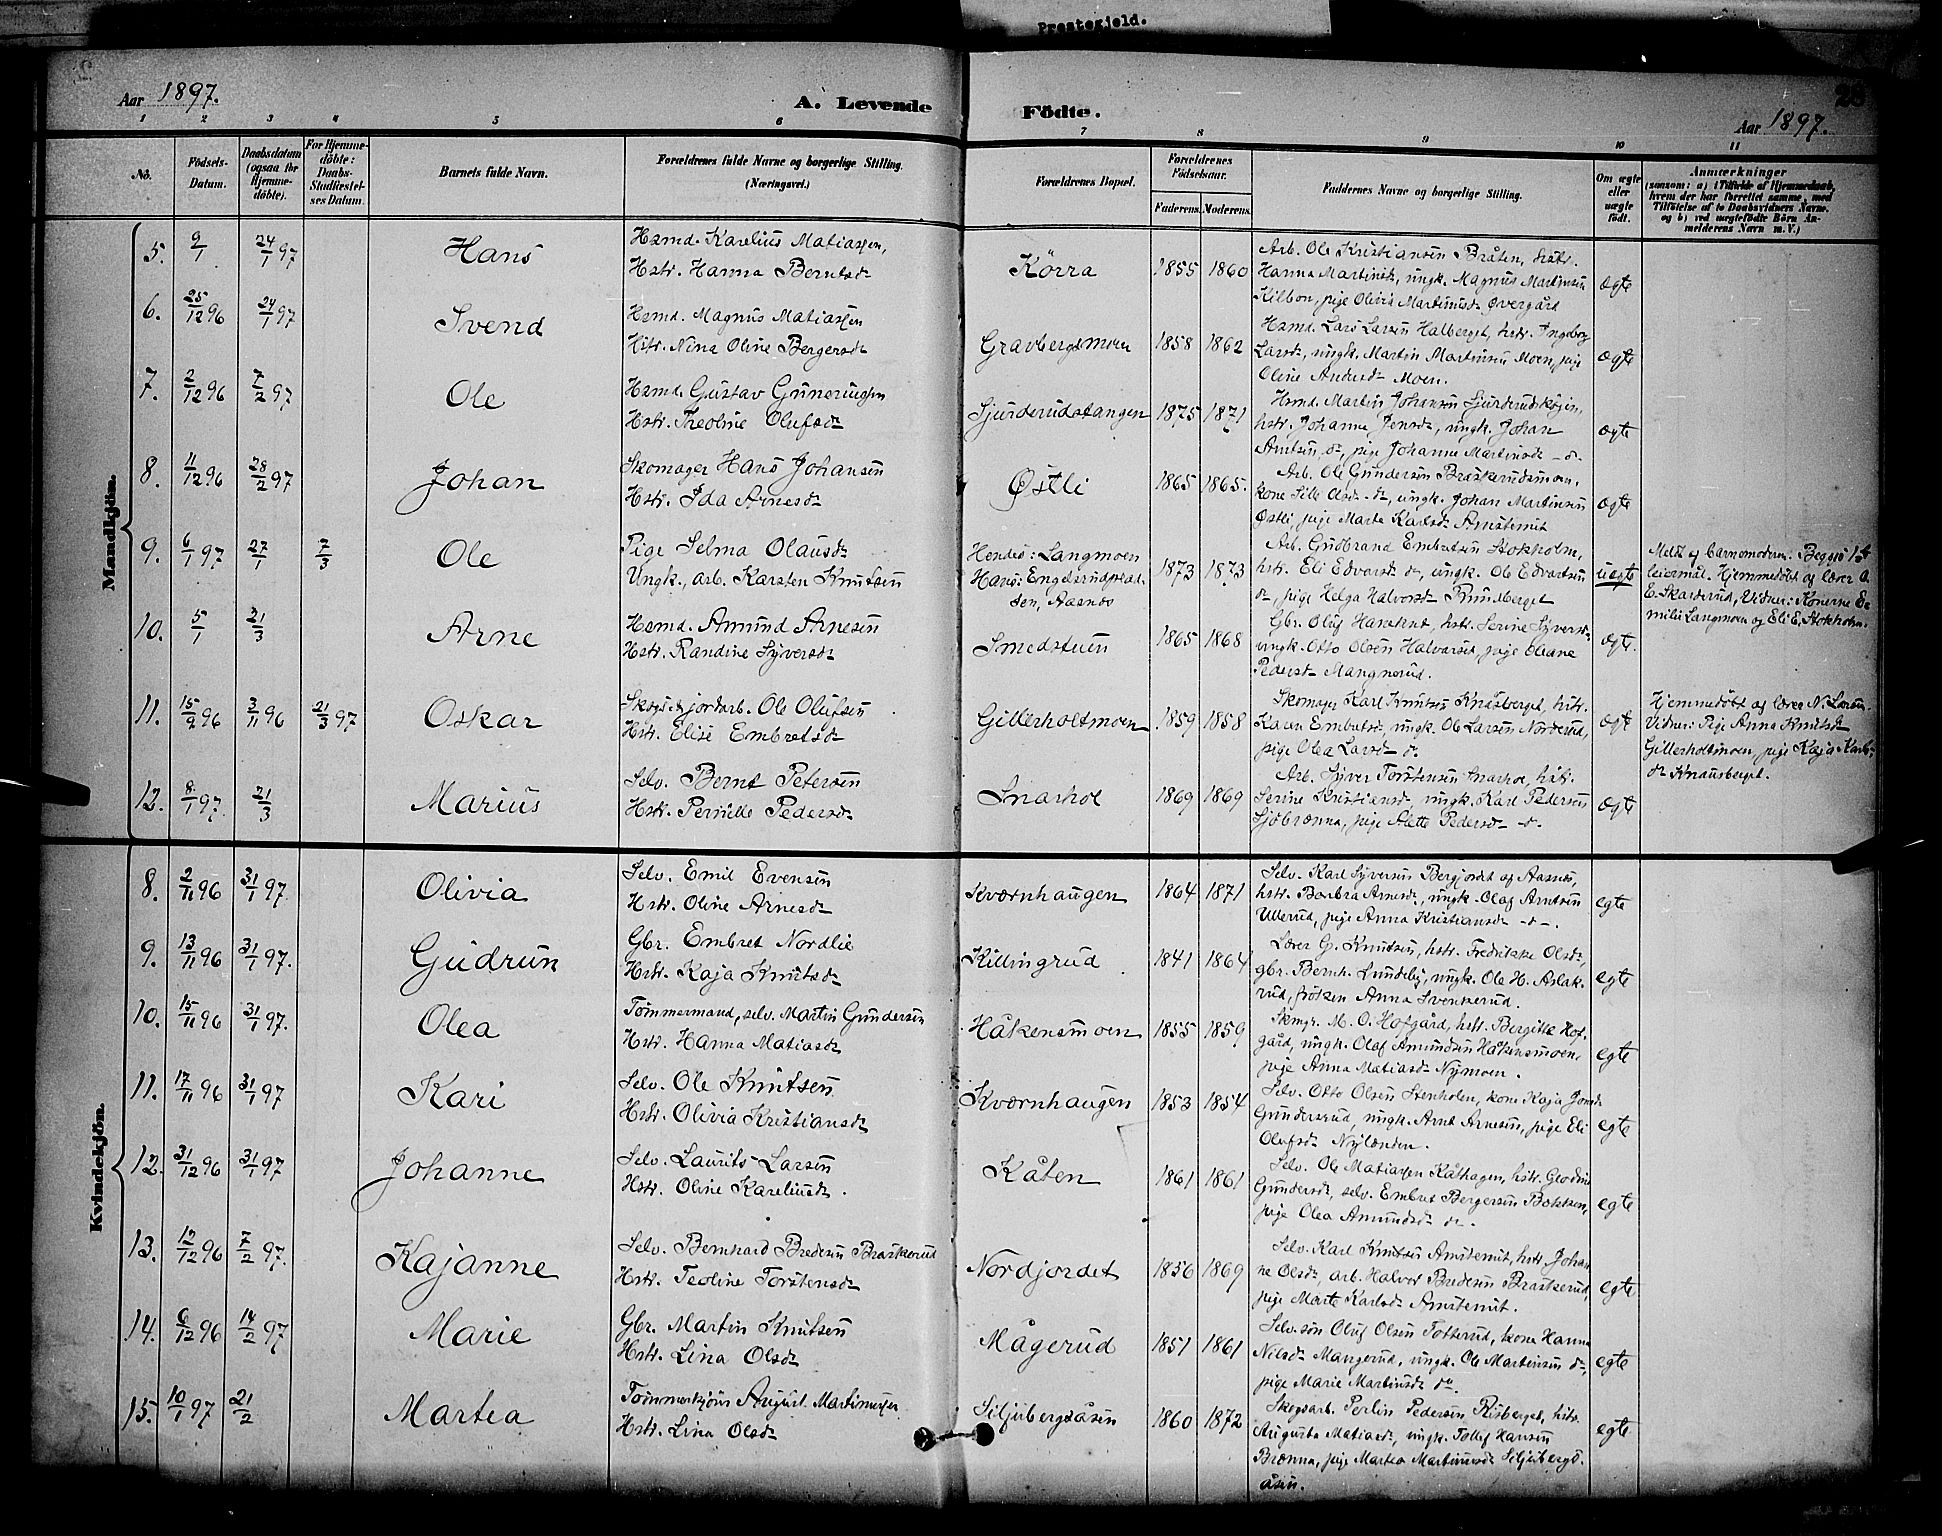 Prestegjeld.
Aar 1897.
A. Levende
Födte.
28
Aar 1897.
1 2 3 4 5 6 7 8 9 10 11
No.
Födsels-
Datum.
Daabsdatum
(ogsaa for
Hjemme-
döbte).
For Hjemme-
döbte:
Daabs-
Stadfæstel-
ses Datum.
Barnets fulde Navn.
Forældrenes fulde Navne og borgerlige Stilling.
(Næringsvei.)
Forældrenes Bopæl.
Forældrenes
Födselsaar.
Faderens. Moderens.
Faddernes Navne og borgerlige Stilling.
Om ægte
eller
uægte
födt.
Anmærkninger
(saasom: a) i Tilfælde af Hjemmedaab,
hvem der har forrettet samme, med
Tilföielse af to Daabsvidners Navne.
og b) ved uægtefödte Börn An-
melderens Navn m. V.)
Mandkjön.
5. 9/1 24/1 97 Hans
Hsmd. Karelius Matiassen,
Hstr. Hanna Berntsdr
Körra 1855 1860
Arb. Ole Kristiansen Bråten, hstr.
Hanna Martinsdr, ungk. Magnus Martinsen
Kilbon, pige Olivia Martinusdr Øvergård
ægte
6. 25/12 96 24/1 97 Svend
Hsmd. Magnus Matiassen
Hstr. Nina Oline Bergersdr
Gravbergsmoen 1858 1862
Hsmd. Lars Larsen Halberget, hstr. Ingeborg
Larsdr, ungk. Martin Martinsen Moen, pige
Oline Andersdr Moen.
ægte
7. 2/12 96 7/2 97 Ole
Hsmd. Gustav Guneriussen
Hstr. Theoline Olufsdr
Sjurderudstangen 1875 1871
Hsmd. Martin Johansen Sjurderudskojen,
hstr. Johanne Jensdr, ungk. Johan
Arntsen do, pige Johanne Martinsdr - do -
ægte
8. 11/12 96 28/2 97 Johan
Skomager Hans Johansen
Hstr. Ida Arnesdr
Østli 1865 1865.
Arb. Ole Gundersen Braskerudsmoen,
kone Sille Olsdr - do, ungk. Johan Martinsen
Østli, pige Marte Karlsdr Arnstemit
ægte
9. 6/1 97 27/1 7/3 Ole
Pige Selma Olausdr
Ungk., arb. Karsten Knutsen
Hendes: Langmoen
Hans: Engelsrudgaar-
den, Aasnes
1873 1873
Arb. Gudbrand Embretsen Stokholm,
hstr. Eli Edvardsdr do, ungk. Ole Edvartsen
do, pige Helga Halvorsdr Rundberget
uægte
Meldt af barnemoderen: Begges 1ste
leiermål. Hjemmedöbt af lærer O.
E. Skarderud, Vidner: Konerne Em-
milie Langmoen og Eli E. Stokholm.
10. 5/1 21/3 Arne
Hsmd. Amund Arnesen
Hstr. Randine Syversdr
Smedstuen 1865 1868
Gbr. Oluf Haratunt, hstr. Serine Syversdr
ungk. Otto Olsen Halvarset, pige Olaane
Pedersdr Mangnerud.
ægte.
11. 15/9 96 3/11 96 21/3 97 Oskar
Skogs & jordarb. Ole Olufsen
Hstr. Elise Embretsdr
Gillerholtmoen 1859 1858
Skomager Karl Knutsen Knasberget, hstr.
Karen Embretsdr, ungk. Ole Larsen Norderud,
pige Olea Larsdr do.
ægt
Hjemmedöbt af lærer N. Larsen.
Vidner: Pige Anna Knutsdr
Gillerholtmoen, pige Kaja Karls-
dr Knausberget.
12. 8/1 97. 21/3 Marius
Selv. Bernt Petersen
Hstr. Pernille Pedersdr
Snarhol 1869 1869
Arb. Syver Torstensen Snarhol, hstr.
Serine Kristiansdr, ungk. Karl Pedersen
Sjöbrænna, pige Alette Pedersdr - do -
ægte
Kvindekjön.
8. 2/11 96 31/1 97. Olivia
Selv. Emil Evensen
Hstr. Oline Arnesdr
Kværnhaugen 1864 1871
Selv. Karl Syversen Bergjordet af Aasnes,
hstr. Barbra Arnesdr, ungk. Olaf Arntsen
Ullerud, pige Anna Kristiansdr - do -.
egte
9. 13/11 96 31/1 97. Gudrun
Gbr. Embret Nordlie
Hstr. Kaja Knutsdr
Killingrud 1841 1864
Lærer G. Knutsen, hstr. Fredrikke Olsdr,
gbr. Bernh. Lundeby, ungk. Ole H. Aslak-
rud, fröken Anna Svenkerud.
egte
10. 15/11 96 31/1 97. Olea
Tömmermand, selv. Martin Gundersen
Hstr. Hanna Matiasdr
Håkensmoen 1855 1859
Skmgr. M. O. Hofgård, hstr. Bergitte Hof-
gård, ungk. Olaf Amundsen Håkensmoen,
pige Anna Matiasdr Nymoen.
egte
11. 17/11 96 31/1 97 Kari
Selv. Ole Knutsen
Hstr. Olivia Kristiansdr
Kværnhaugen 1853 1854
Selv. Otto Olsen Stenholen, kone Kaja Jonsdr
Gundersrud, ungk. Arnt Arnesen, pige Eli
Olufsdr Nylænden.
egte
12. 31/12 96 31/1 97 Johanne
Selv. Laurits Larsen
Hstr. Oline Kareliusdr.
Kåten 1861 1861
Selv. Ole Matiassen Kåthagen, hstr. Geodine
Gundersdr, selv. Embret Bergersen Bokksen,
pige Olea Amundsdr do.
egte
13. 12/12 96 7/2 97. Kajanne
Selv. Bernhard Bredesen Braskerud
Hstr. Teoline Torstensdr
Nordjordet 1856 1869
Selv. Karl Knutsen Arnstemit, hstr. Johan-
ne Olsdr, arb. Halvor Bredesen Braskerud,
pige Marte Karlsdr Arnstemit.
egte
14. 6/12 96 14/2 97 Marie
Gbr. Martin Knutsen
Hstr. Lina Olsdr
Mågerud 1851 1861
Selv. søn Oluf Olsen Totterud, kone Hanna
Nilsdr Mangerud, ungk. Ole Martinsen do,
pige Marie Martinsdr do.
egte
15. 10/1 97 21/2 Martea
Tömmerkjörer August Martinussen
Hstr. Lina Olsdr
Siljubergsåsen 1860 1872
Skogsarb. Perlin Pedersen Risberget, hstr.
Augusta Matiasdr, ungk. Tollef Hansen
Brænna, pige Martea Martinusdr Siljubergs-
åsen.
egte